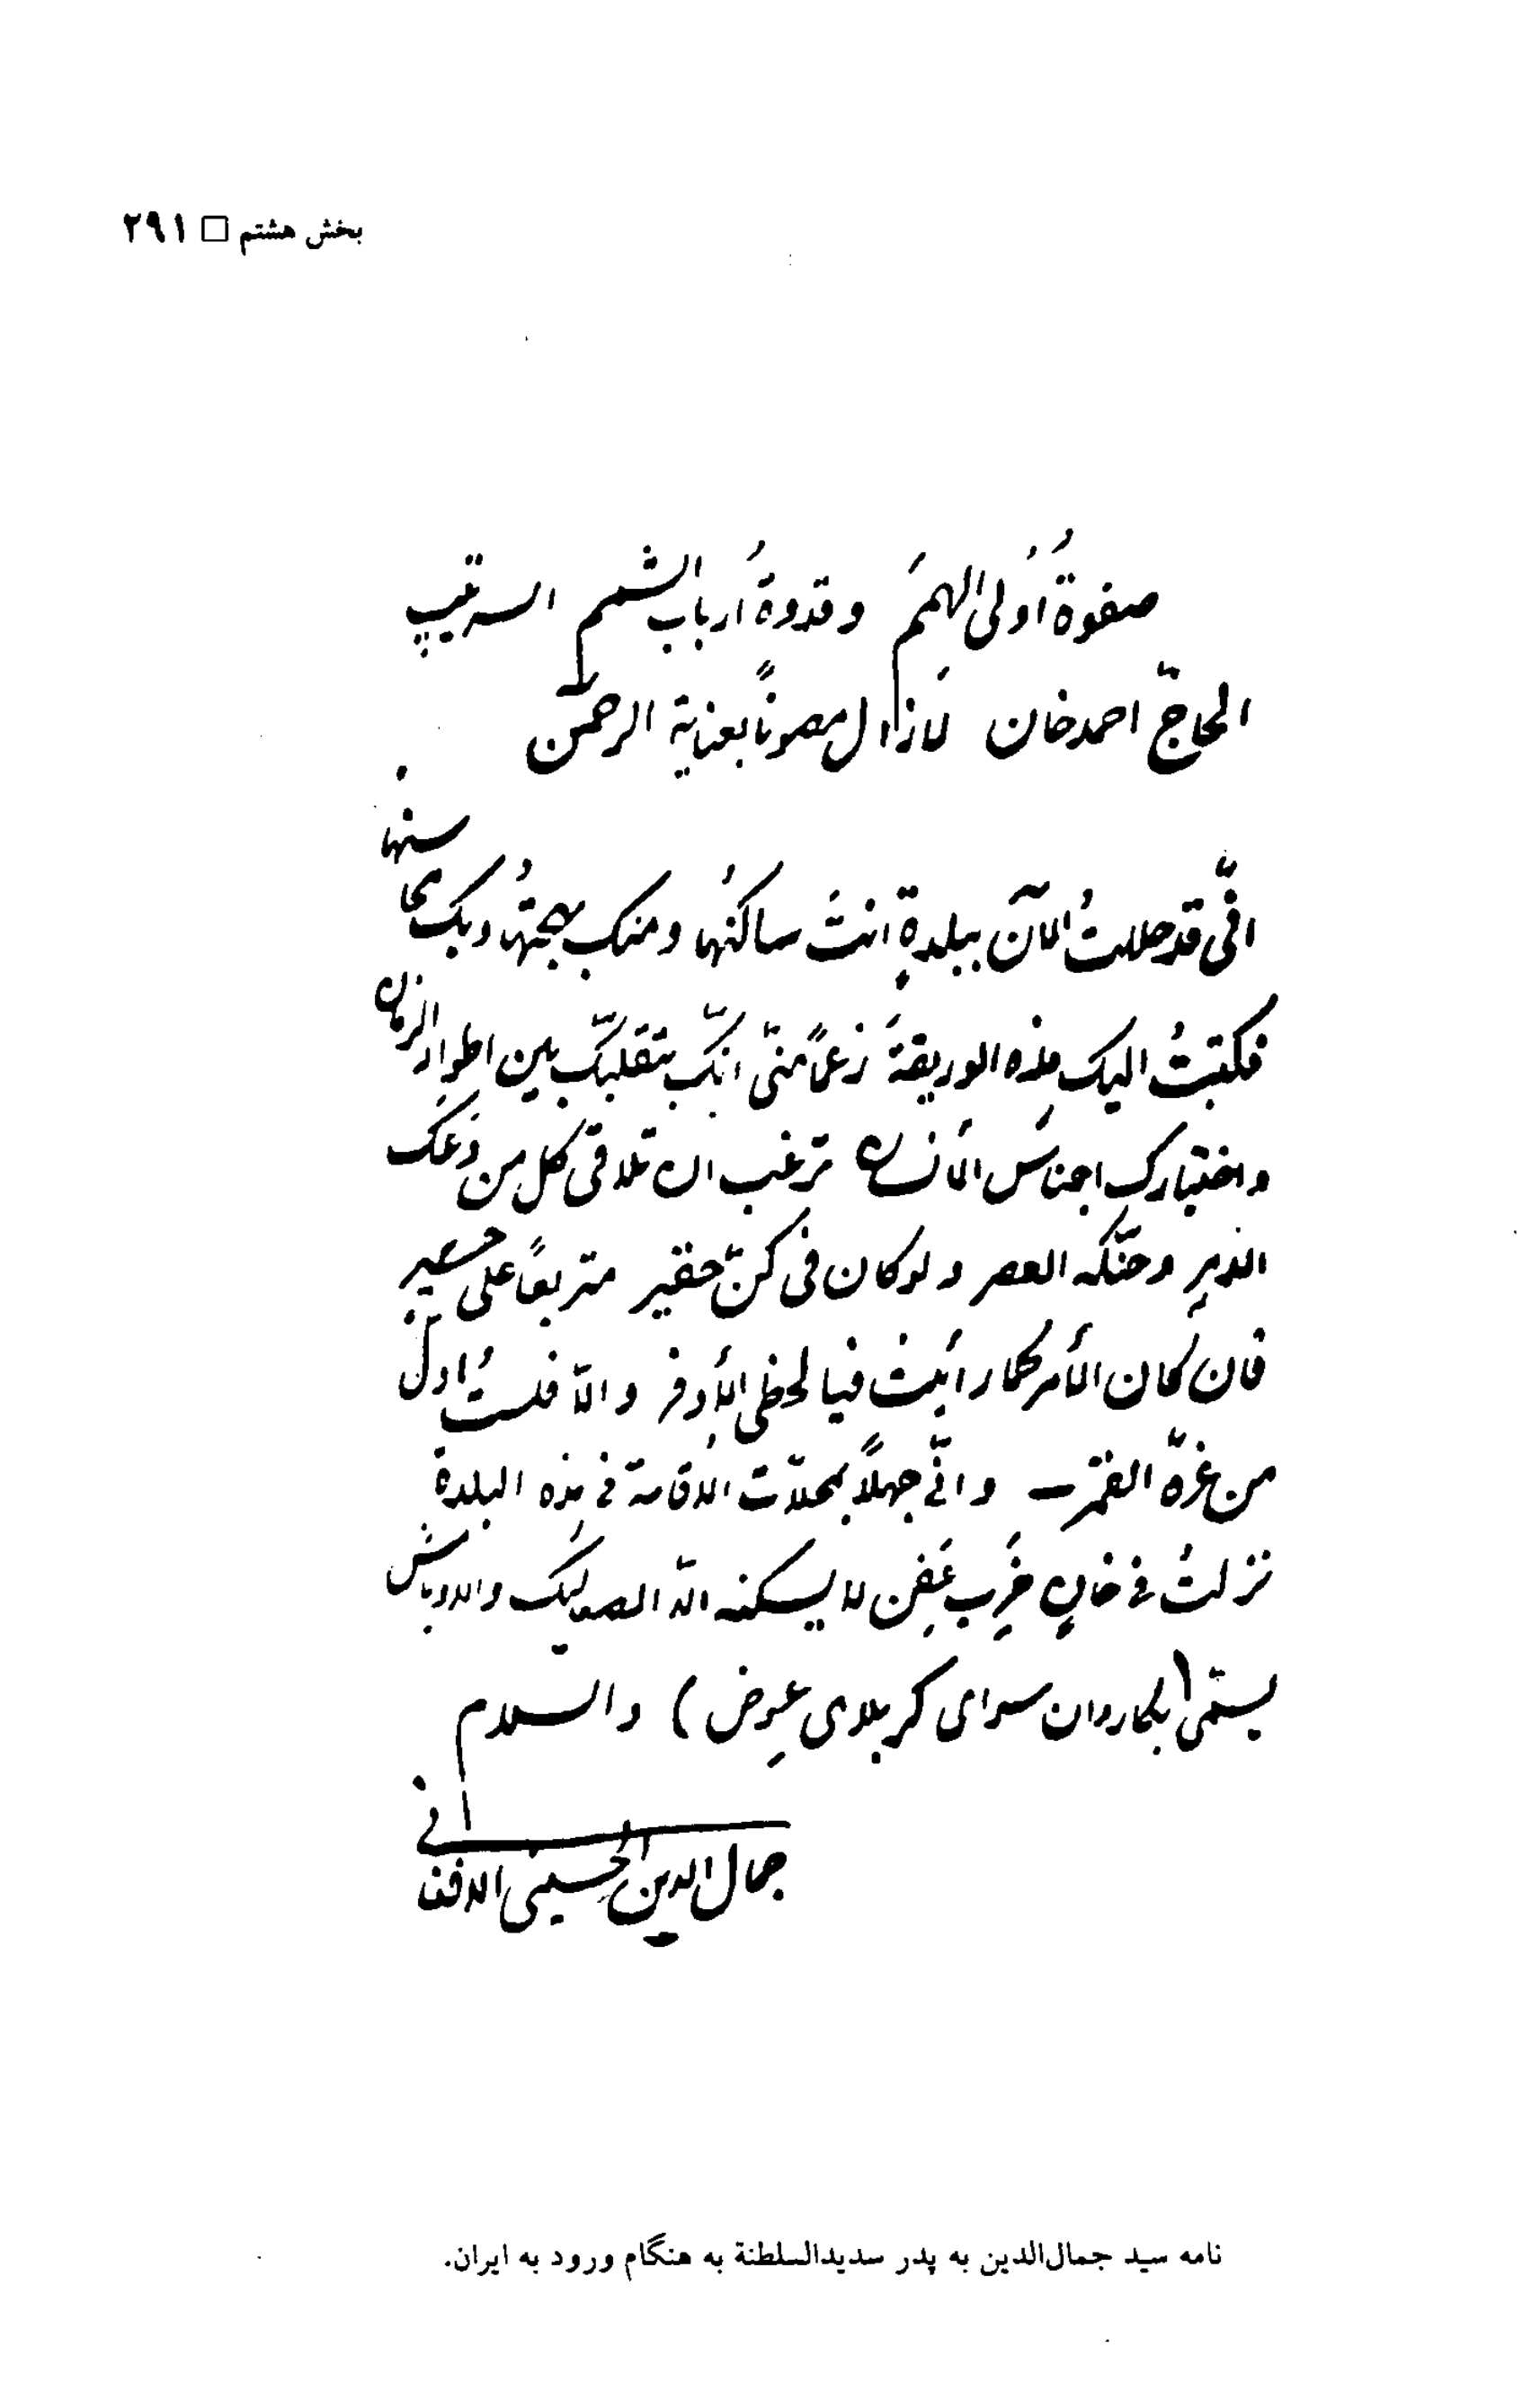 بخش هشتم □ ۲۹۱
صفوةُ أولی الهمَم وقدوةُ ارباب الشمم السرتیپ
الحاجّ احمدخان لَازال مصوناً بعنایة الرحمن
انّی قد حللتُ الآن ببلدةٍ انتَ ساکنُها ومنک بهجتُها وبک محاسنها
فکتبتُ الیک هذه الوریقةَ زعماً منّی انّک بتقلبک بین اطوار الزمان
واختبارک اجناسَ الأنسان ترغب ان تلاقی کل من وَعَک
الدهر وحنّکه العصر ولو کان فی کنّ حقیر متربعاً علی حصیر
فان کان الأمر کما رایتُ فیا لحظی الأوفر والّا فلستُ اوّل
من غرّه القمر وانّی جهلاً بمحلّات الاقامة فی هذه البلدة
نزلتُ فی خانٍ خَرِب عَفِن لا یسکنه الّا الصعالیک والاوباش
یسمّی (بکاروان سرای کربلای عوض) والسلام
جمال الدین الحسینی الافغانی
نامه سید جمال‌الدین به پدر سدیدالسلطنة به هنگام ورود به ایران.